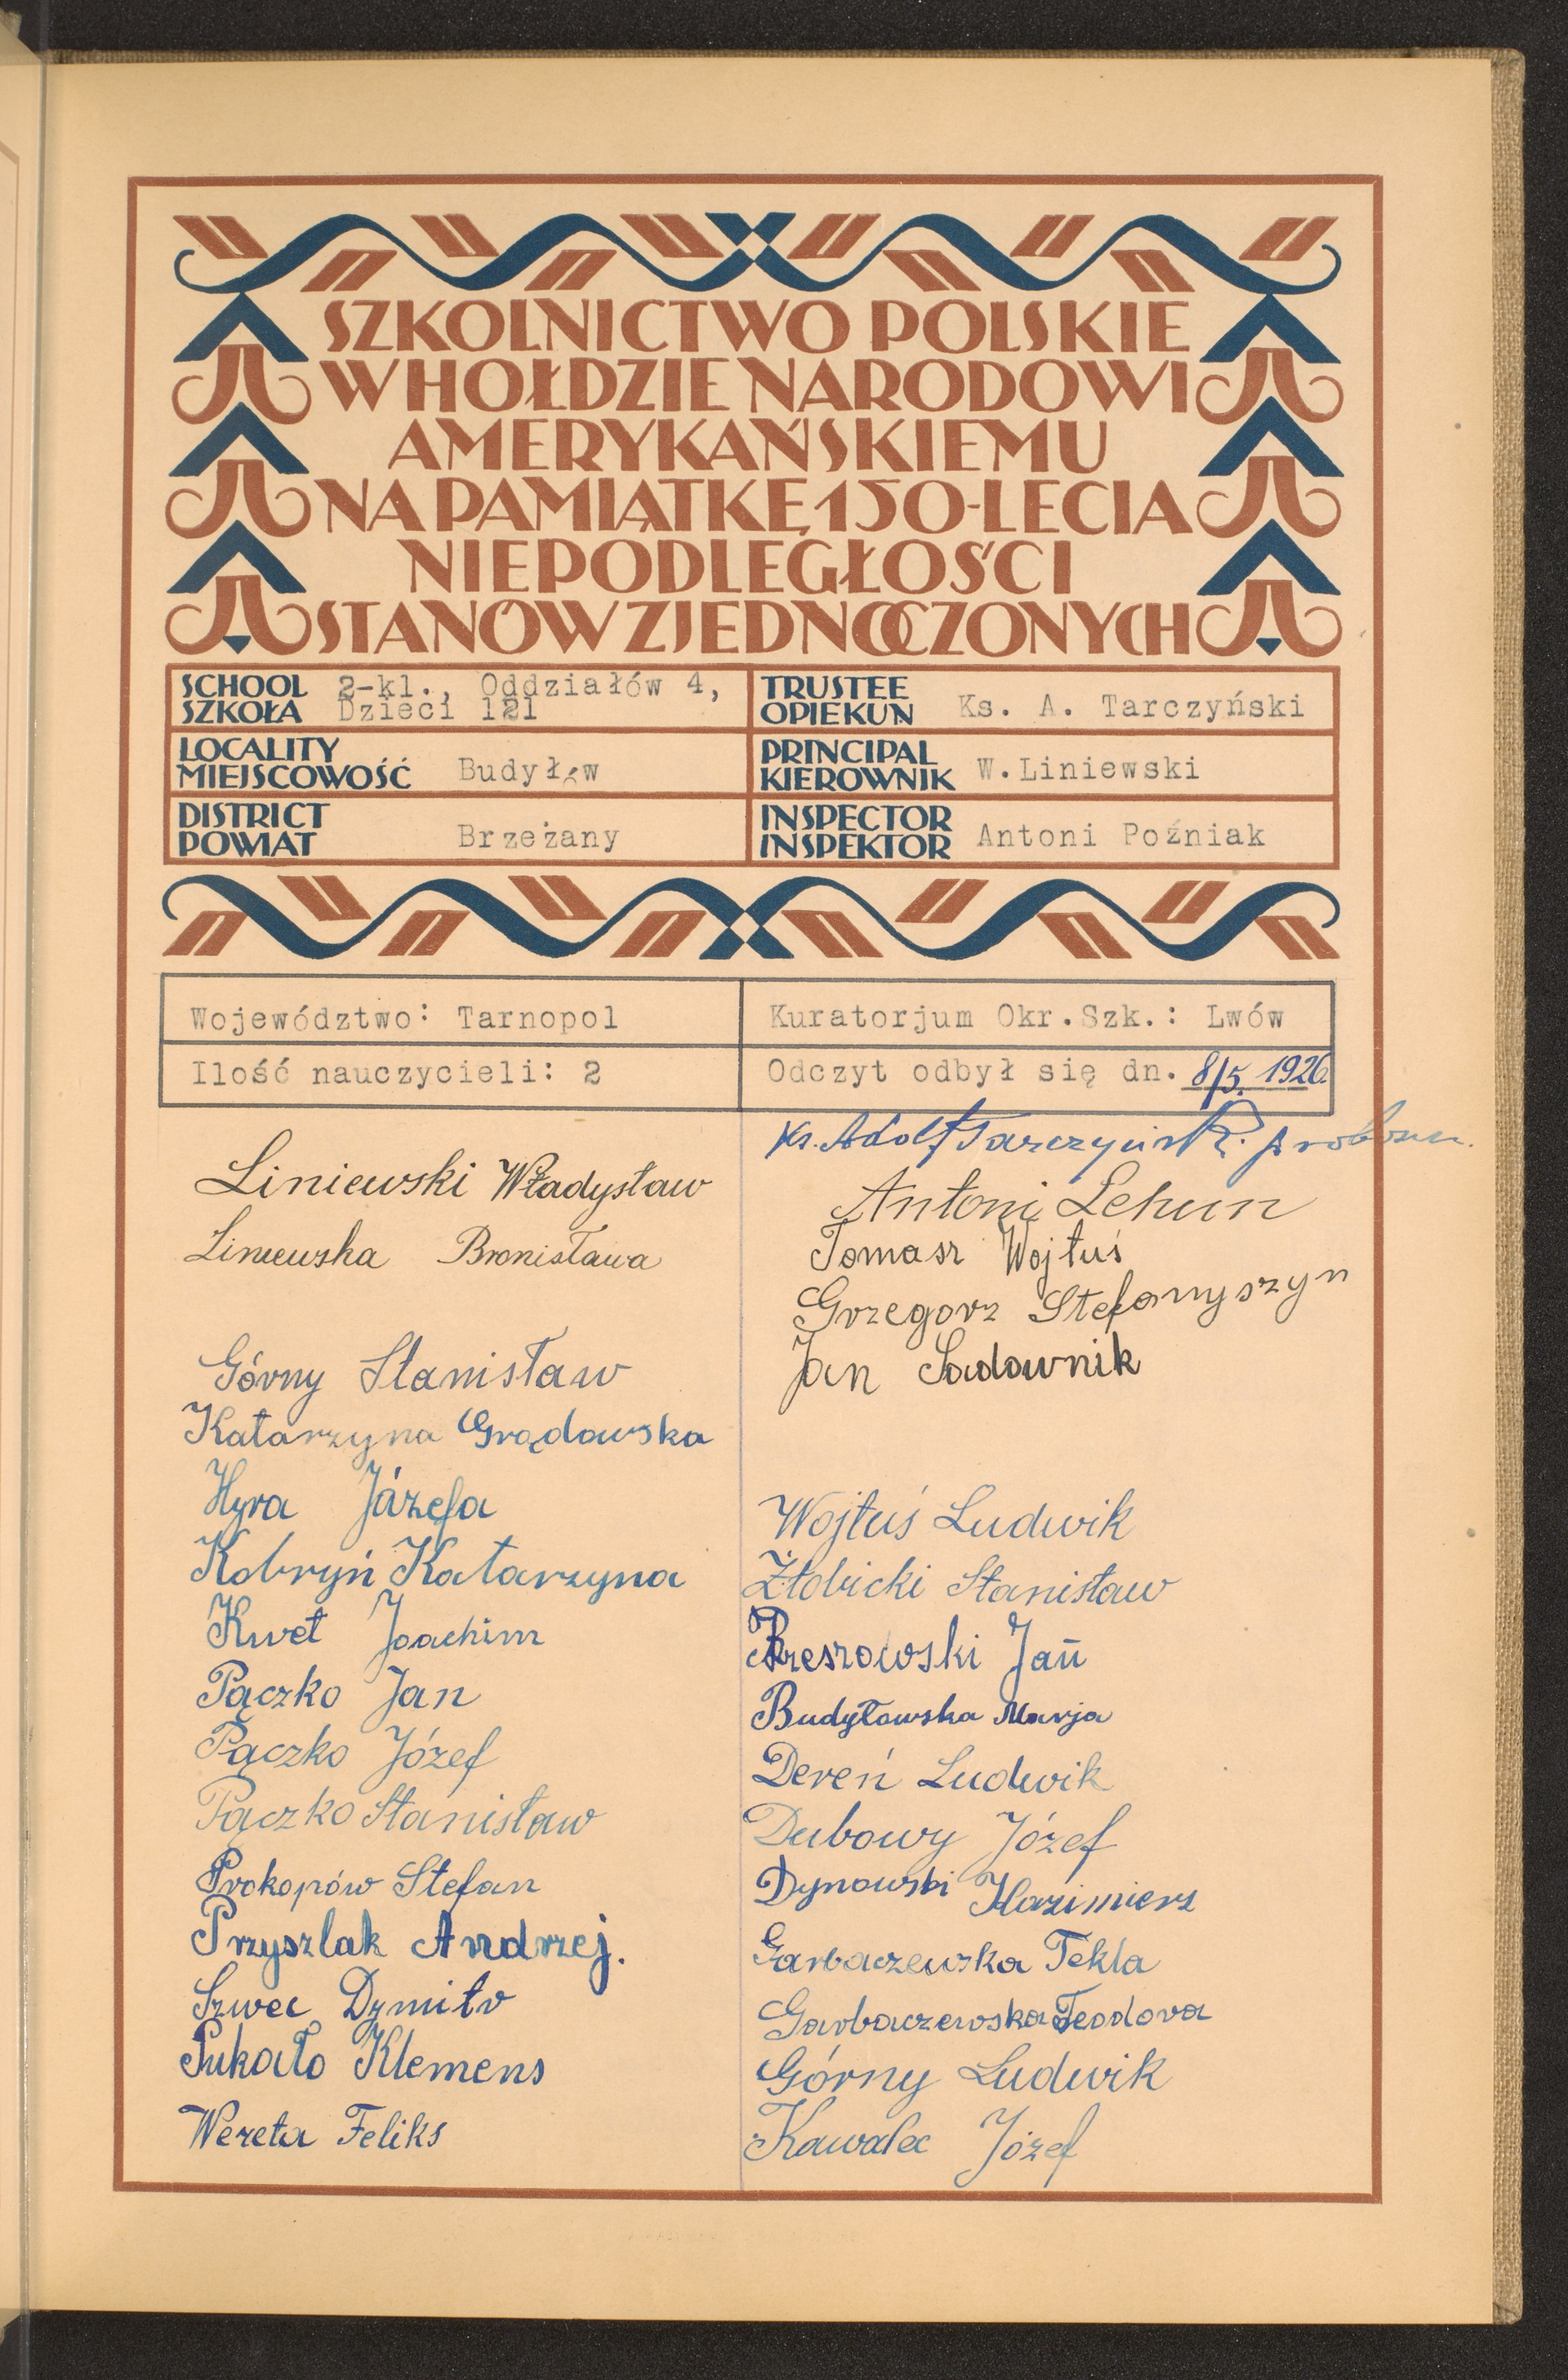 SZKOLNICTWO POLSKIE
W HOŁDZIE NARODOWI
AMERYKAŃSKIEMU
NA PAMIĄTKĘ 150-LECIA
NIEPODLEGŁOŚCI
STANÓW ZJEDNOCZONYCH
SCHOOL
SZKOŁA
2-kl., Oddziałów 4,
Dzieci 121
TRUSTEE
OPIEKUN
Ks. A. Tarczyński
LOCALITY
MIEJSCOWOŚĆ
Budyłów
PRINCIPAL
KIEROWNIK
W.Liniewski
DISTRICT
POWIAT
Brzeżany
INSPECTOR
INSPEKTOR
Antoni Poźniak
Województwo: Tarnopol
Kuratorjum Okr.Szk.: Lwów
Ilość nauczycieli: 2
Odczyt odbył się dn. 8/5. 1926.
Liniewski Władysław
Liniewska Bronisława
Górny Stanisław
Katarzyna Grądowska
Hyra Józefa
Kobryń Katarzyna
Kwet Joachim
Pączko Jan
Pączko Józef
Pączko Stanisław
Prokopów Stefan
Przyszlak Andrzej.
Szwec Dymitr
Pukało Klemens
Wereta Feliks
Ks. Adolf Tarczyński proboszcz.
Antoni Lehun
Tomasz Wojtuś
Grzegorz Stefanyszyn
Jan Sadownik
Wojtuś Ludwik
Żłobicki Stanisław
Rzeszowski Jan
Budyłowska Marja
Dereń Ludwik
Dubowy Józef
Dynowski Kazimierz
Garbaczewska Tekla
Garbaczewska Teodora
Górny Ludwik
Kawalec Józef